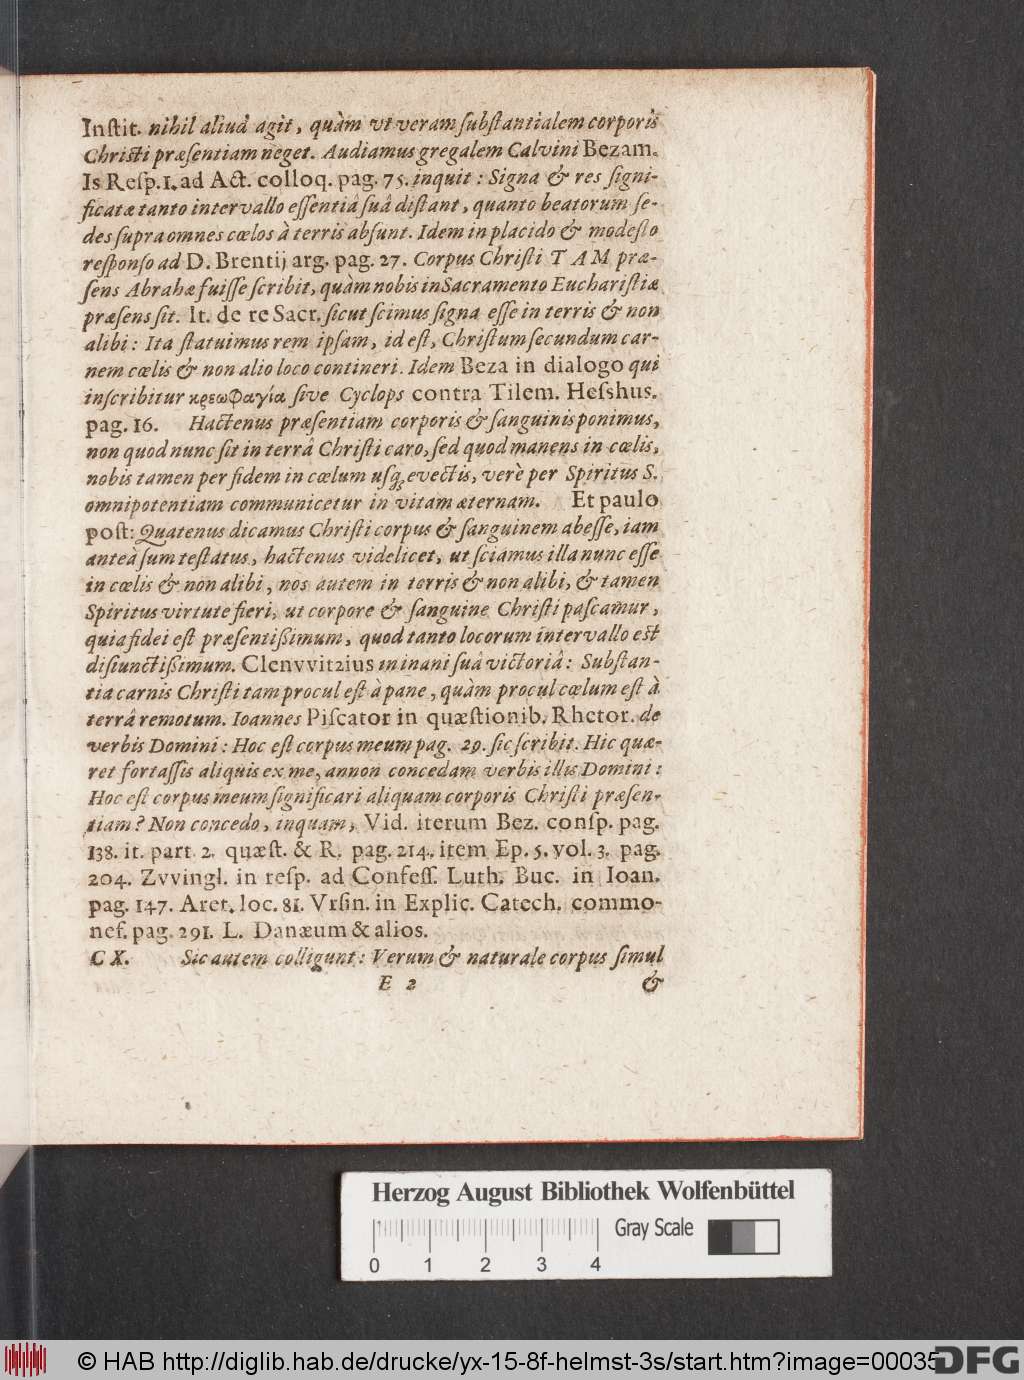 Inſtit. nihil aliud agit, quàm vt veram ſubſtantialem corporis
Chriſti præſentiam neget. Audiamus gregalem Calvini Bezam.
Is Reſp. 1. ad Act. colloq. pag. 75. inquit: Signa & res ſigni-
ficatæ tanto intervallo eſſentiâ ſuâ diſtant, quanto beatorum ſe-
des ſupra omnes cœlos à terris abſunt. Idem in placido & modeſto
reſponſo ad D. Brentij arg. pag. 27. Corpus Chriſti TAM præ-
ſens Abrahæ fuiſſe ſcribit, quàm nobis in Sacramento Euchariſtiæ
præſens ſit. It. de re Sacr. ſicut ſcimus ſigna eſſe in terris & non
alibi: Ita ſtatuimus rem ipſam, id eſt, Chriſtum ſecundum car-
nem cœlis & non alio loco contineri. Idem Beza in dialogo qui
inſcribitur κρεωφαγία ſive Cyclops contra Tilem. Heſshus.
pag. 16. Hactenus præſentiam corporis & ſanguinis ponimus,
non quod nunc ſit in terrâ Chriſti caro, ſed quod manens in cœlis,
nobis tamen per fidem in cœlum uſq; evectis, verè per Spiritus S.
omnipotentiam communicetur in vitam æternam. Et paulo
poſt: Quatenus dicamus Chriſti corpus & ſanguinem abeſſe, iam
anteà ſum teſtatus, hactenus videlicet, ut ſciamus illa nunc eſſe
in cœlis & non alibi, nos autem in terris & non alibi, & tamen
Spiritus virtute fieri, ut corpore & ſanguine Chriſti paſcamur,
quia fidei eſt præſentißimum, quod tanto locorum intervallo eſt
diſiunctißimum. Clenvvitzius in inani ſuâ victoriâ: Subſtan-
tia carnis Chriſti tam procul eſt à pane, quàm procul cœlum eſt à
terrâ remotum. Ioannes Piſcator in quæſtionib. Rhetor. de
verbis Domini: Hoc eſt corpus meum pag. 29. ſic ſcribit. Hic quæ-
ret fortaſſis aliquis ex me, annon concedam verbis illis Domini:
Hoc eſt corpus meum ſignificari aliquam corporis Chriſti præſen-
tiam? Non concedo, inquam, Vid. iterum Bez. conſp. pag.
138. it. part. 2. quæſt. & R. pag. 214. item Ep. 5. vol. 3. pag.
204. Zvvingl. in reſp. ad Confeſſ. Luth. Buc. in Ioan.
pag. 147. Aret. loc. 81. Vrſin. in Explic. Catech. commo-
nef. pag. 291. L. Danæum & alios.
CX. Sic autem colligunt: Verum & naturale corpus ſimul
E 2 &
Herzog August Bibliothek Wolfenbüttel
Gray Scale
0 1 2 3 4
© HAB http://diglib.hab.de/drucke/yx-15-8f-helmst-3s/start.htm?image=00035
DFG